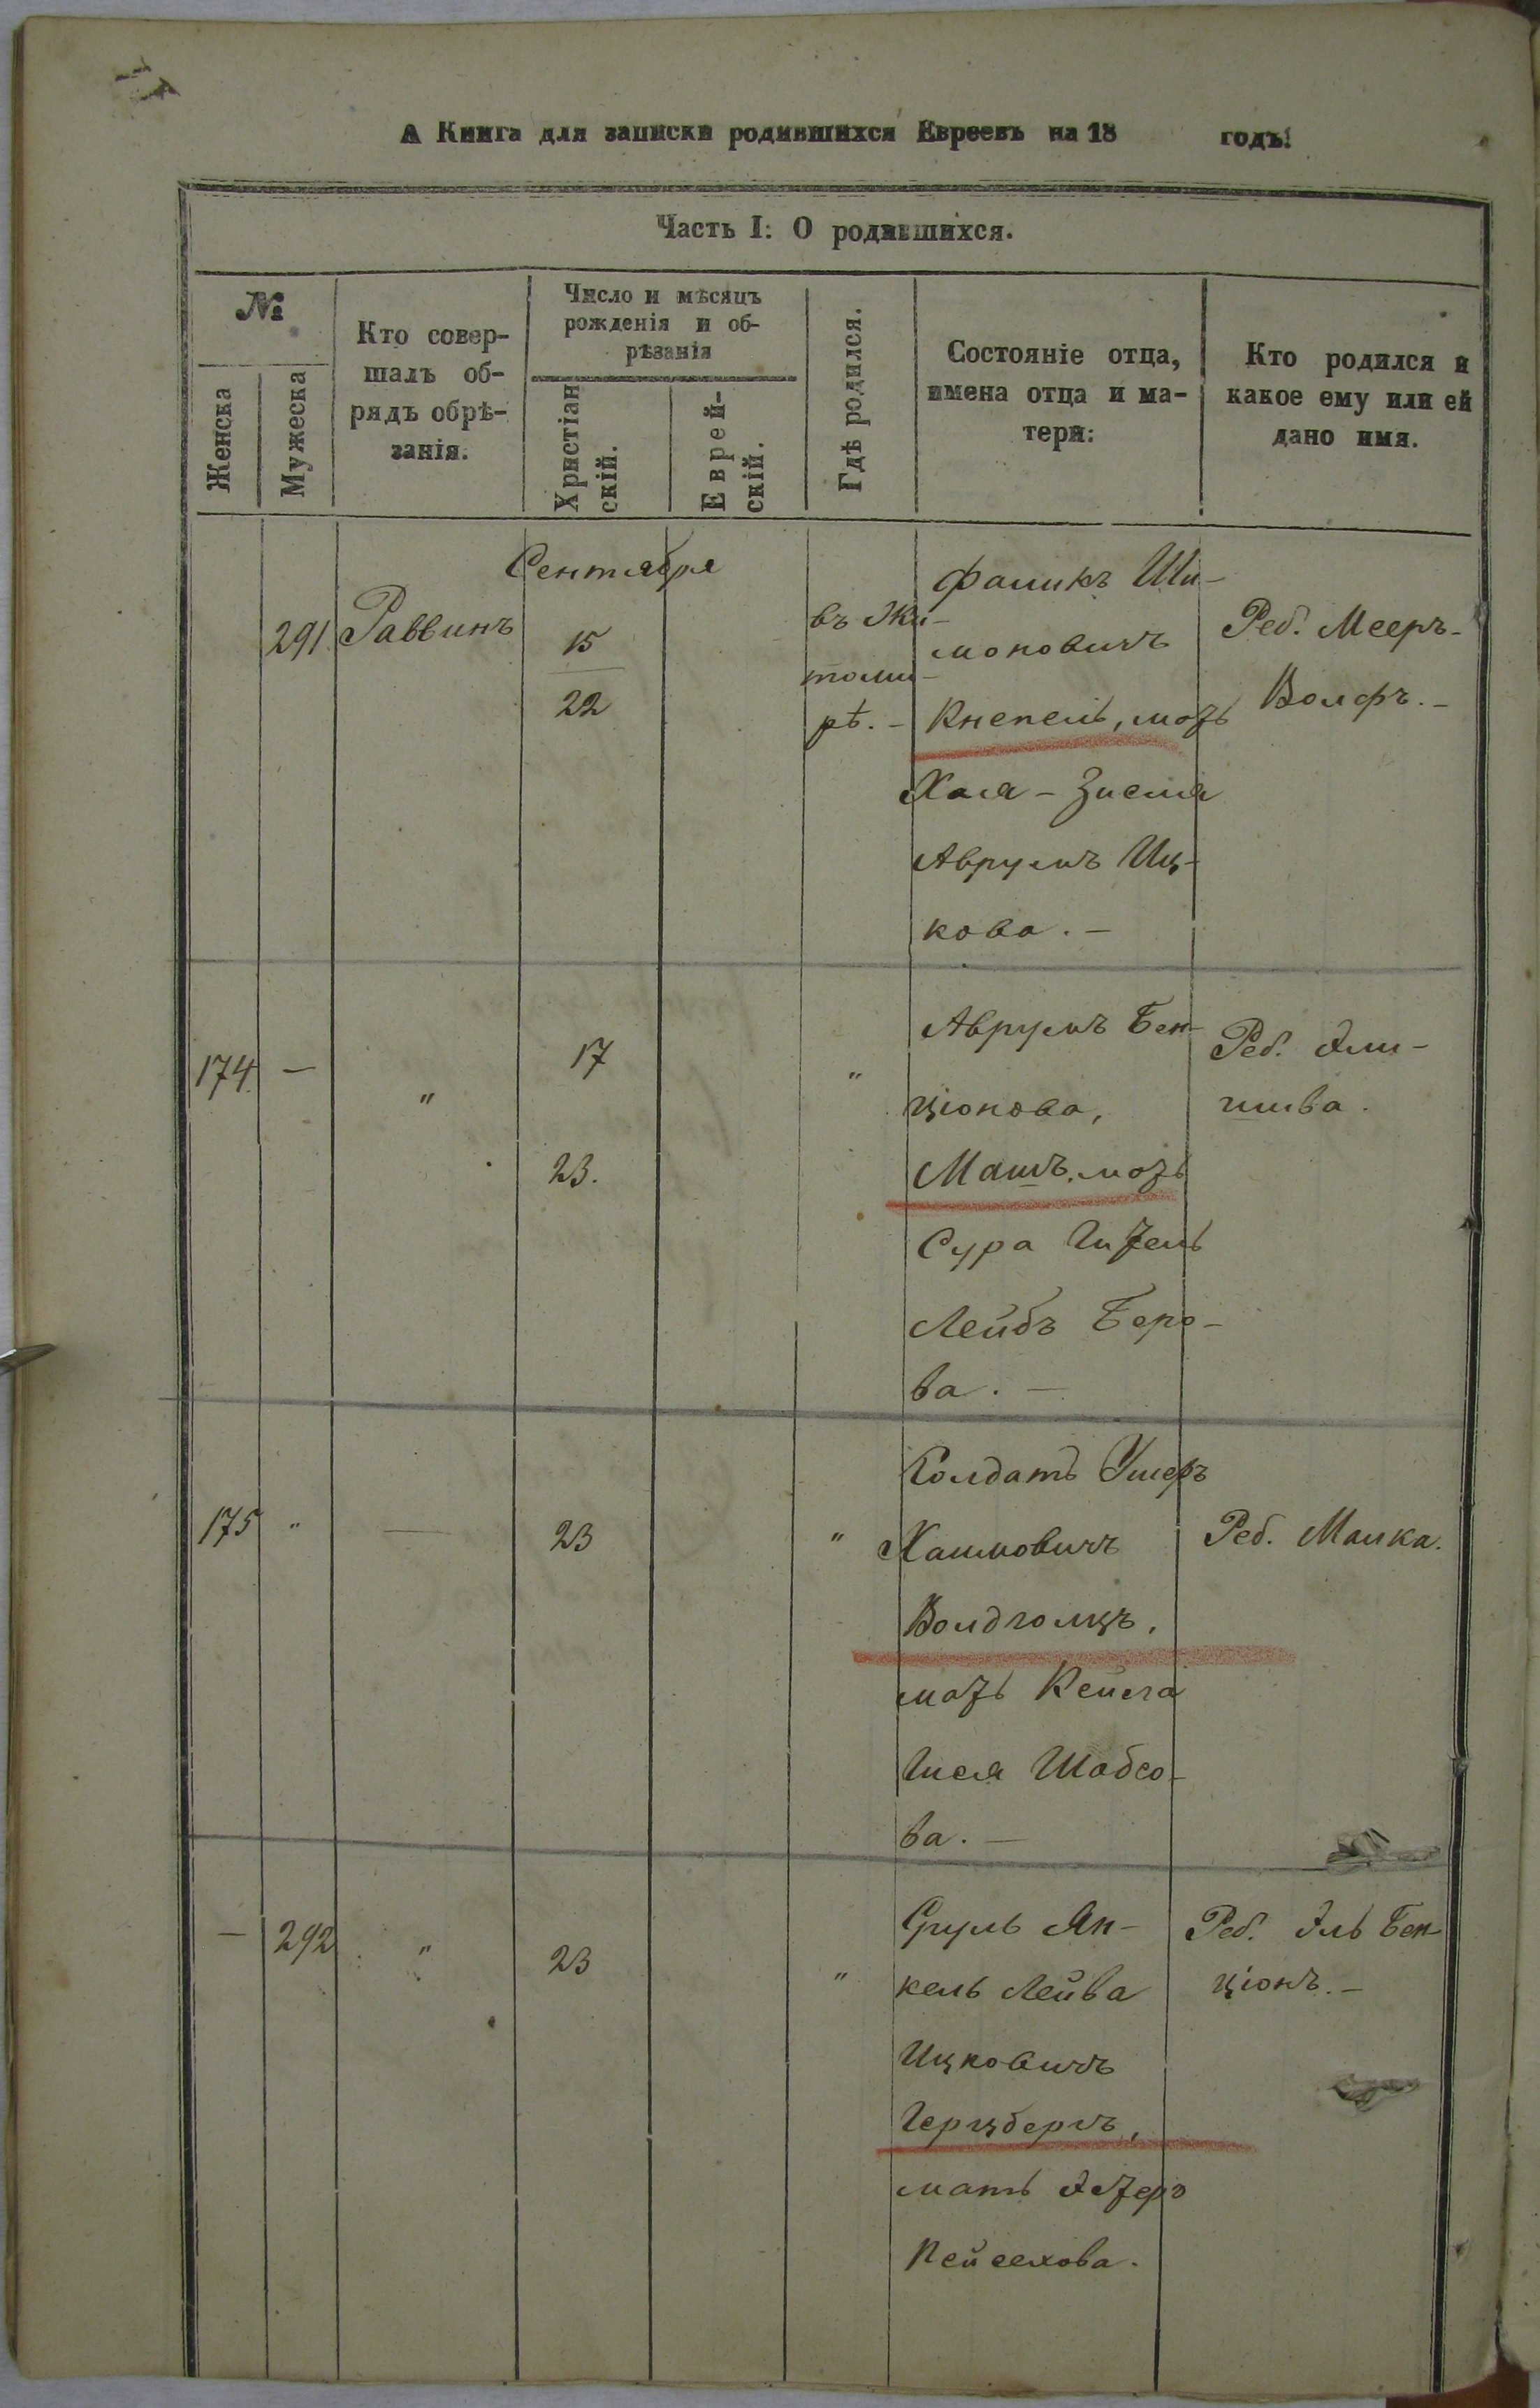 А Книга для записки родившихся Евреевъ на 18 годъ.
Часть I: О родившихся.
№
Женска
Мужеска
Кто совер-
шалъ об-
рядъ обрѣ-
занія.
Число и мѣсяцъ
рожденія и об-
рѣзанія
Христіан
скій.
Еврей-
скій.
Гдѣ родился.
Состояніе отца,
имена отца и ма-
тери:
Кто родился и
какое ему или ей
дано имя.
Сентября
291
Раввинъ
15
22
въ Жи-
томи-
рѣ. -
Фаликъ Ши-
моновичъ
Кнепель, мать
Хая - Зисля
Аврумъ Иц-
кова. -
Реб. Мееръ-
Волфъ. -
174
—
"
17
23.
"
Аврумъ Бен-
ціонова,
мать
Сура Гитель
Лейбъ Беро-
ва. -
Реб. Эли-
шива.
175
"
—
23
"
Солдатъ Ушеръ
Хаимовичъ
Волдголцъ,
мать Кейла
Гися Шабсо-
ва. -
Реб. Малка.
—
292
"
23
"
Сруль Ян-
кель Лейва
Ицковичъ
Герцбергъ,
мать Эстеръ
Пейсехова.
Реб. Эль Бен-
ціонъ. -